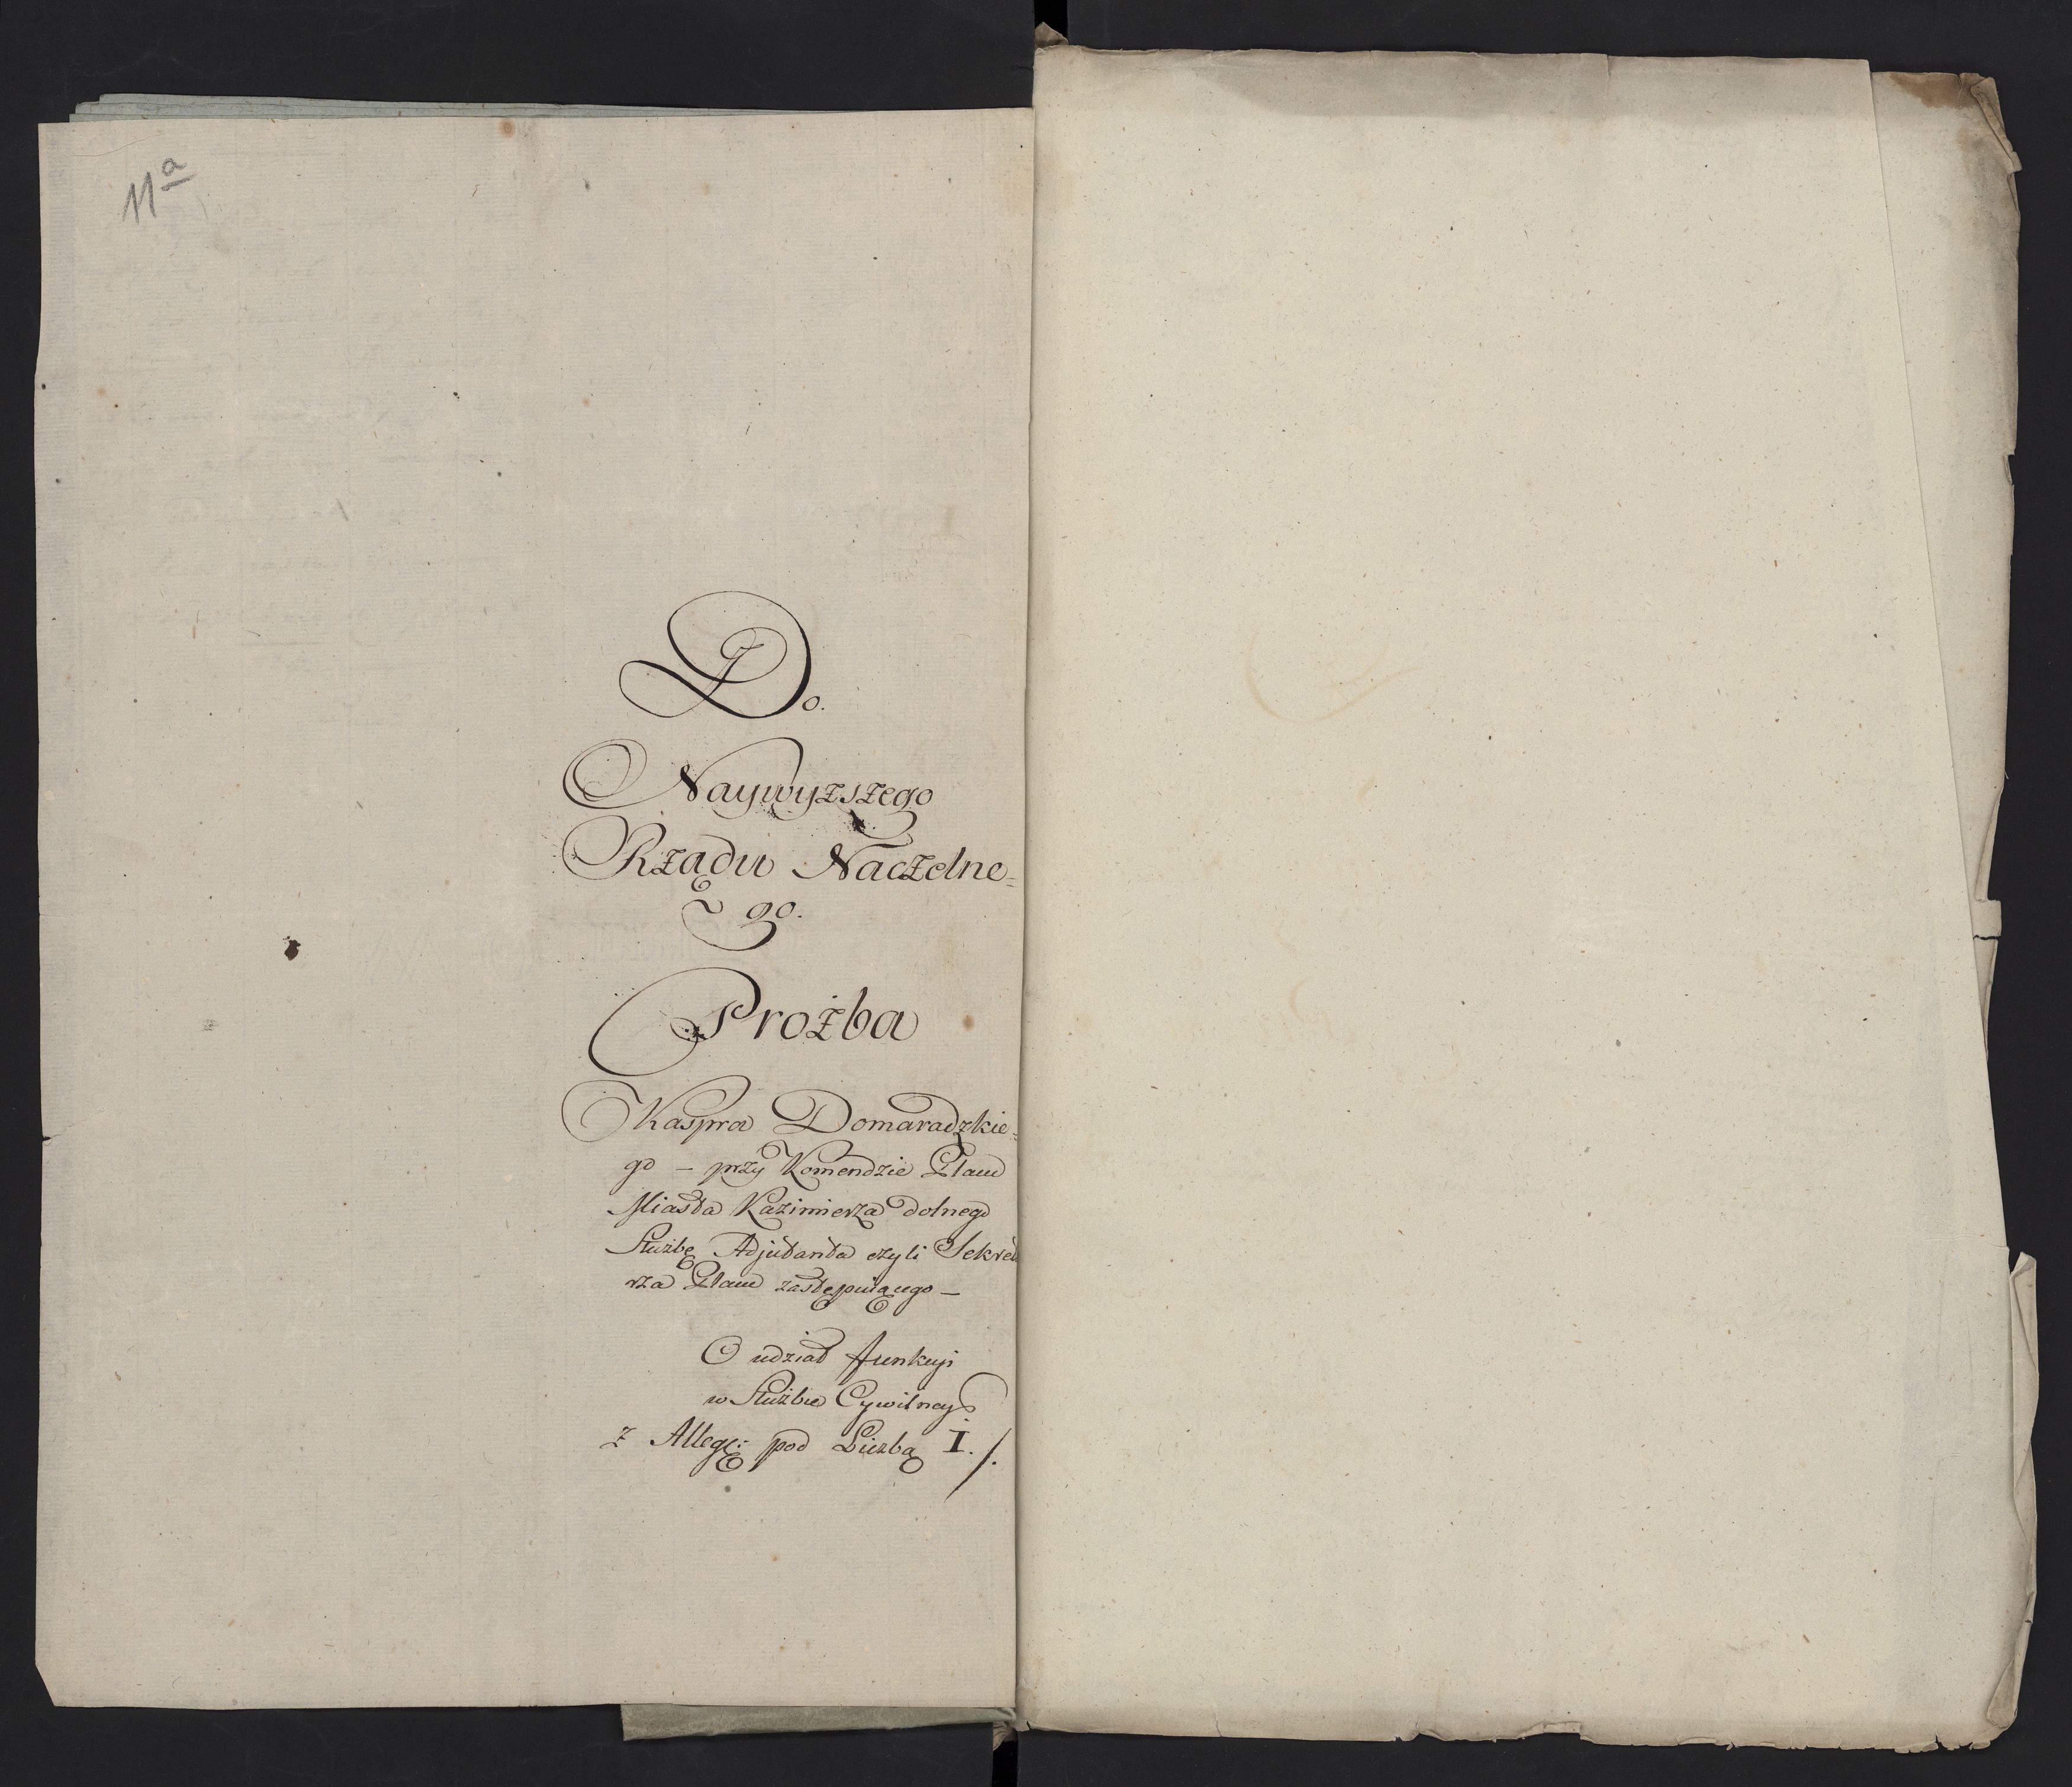 11a
Do.
Naywyzszego
Rządu Naczelne=
go.
Proźba
Kaspra Domaradzkie=
go – przy Komendzie Placu
Miasta Kazimierza dolnego
Służbę Adjutanta czyli Sekret
rza Placu zastępuiącego –
O udział funkcyi
w Służbie Cywilney
z Alleg: pod Liczbą I. /.